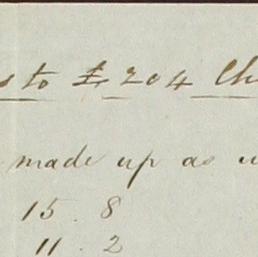 to £204
made up as
15 . 8
11 . 2